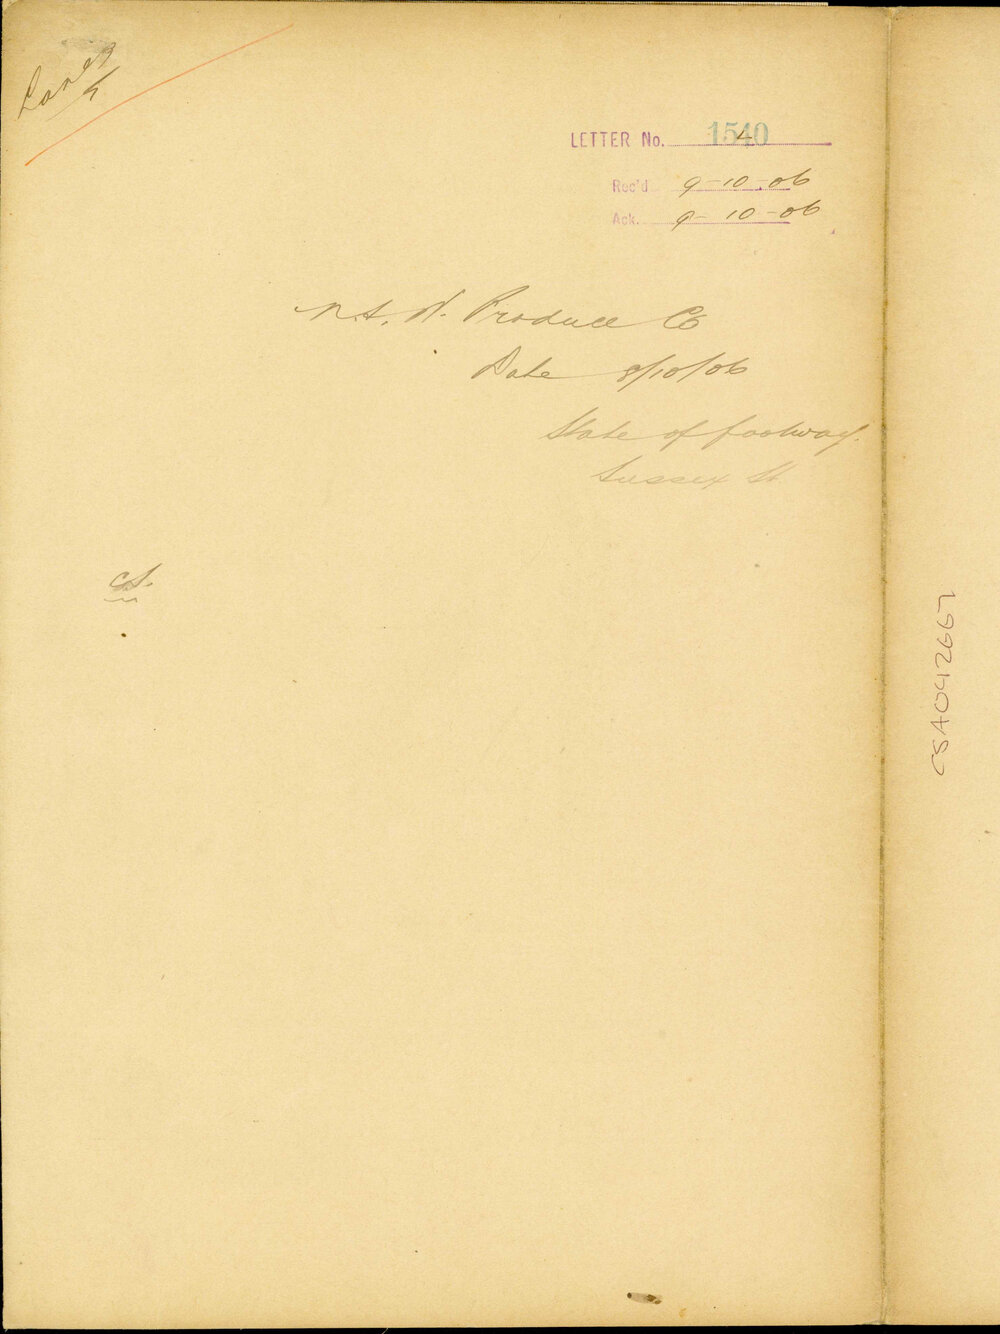 LETTER No. 1540
Rec'd 9-10-06
Ack. 9-10-06
N. Produce Co
Date 8/10/06
State of footway.
Sussex St.
CSA042667